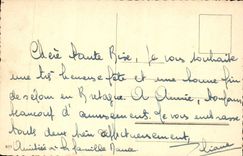 Chère tante Bise, Je vous souhaite
une très heureuse fête et une bonne fin
de séjour en Bretagne. A Annie, toujours
beaucoup d'amusement. Je vous embrasse
tous deux bien affectueusement,
Amitiés à la famille
Eliane